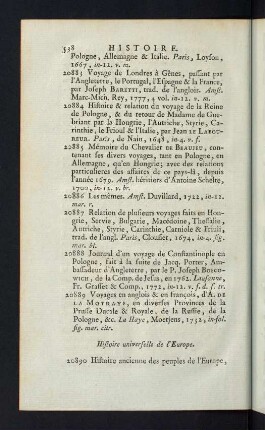 538 HISTOIRE.
Pologne, Allemagne & Italie. Paris, Loyson,
1667, in-12. v. m.
20883 Voyage de Londres à Gênes, passant par
l'Angleterre, le Portugal, l'Espagne & la France,
par Joseph BARETTI, trad. de l'anglois. Amst.
Marc-Mich. Rey, 1777, 4 vol. in-12. v. m.
20884 Histoire & relation du voyage de la Reine
de Pologne, & du retour de Madame de Gué-
briant par la Hongrie, l'Autriche, Styrie, Ca-
rinthie, le Frioul & l'Italie, par Jean LE LABOU-
REUR. Paris, du Nain, 1648, in-4. v. f.
20885 Mémoires du Chevalier de BEAUJEU, con-
tenant ses divers voyages, tant en Pologne, en
Allemagne, qu'en Hongrie; avec des relations
particulieres des affaires de ce pays-là, depuis
l'année 1679. Amst. héritiers d'Antoine Schelte,
1700, in-12. v. br.
20886 Les mêmes. Amst. Duvillard, 1722, in-12.
mar. r.
20887 Relation de plusieurs voyages faits en Hon-
grie, Servie, Bulgarie, Macédoine, Thessalie,
Autriche, Styrie, Carinthie, Carniole & Friuli,
trad. de l'angl. Paris, Clousier, 1674, in-4. fig.
mar. bl.
20888 Journal d'un voyage de Constantinople en
Pologne, fait à la suite de Jacq. Porter, Am-
bassadeur d'Angleterre, par le P. Joseph BOSCO-
WICH, de la Comp. de Jésus, en 1762. Lausanne,
Fr. Grasset & Comp., 1772, in-12. v. f. d. f. tr.
20889 Voyages en anglois & en françois, d'A. DE
LA MOTRAYE, en diverses Provinces de la
Prusse Ducale & Royale, de la Russie, de la
Pologne, &c. La Haye, Moetjens, 1732, in-fol.
fig. mar. citr.
Histoire universelle de l'Europe.
20890 Histoire ancienne des peuples de l'Europe,